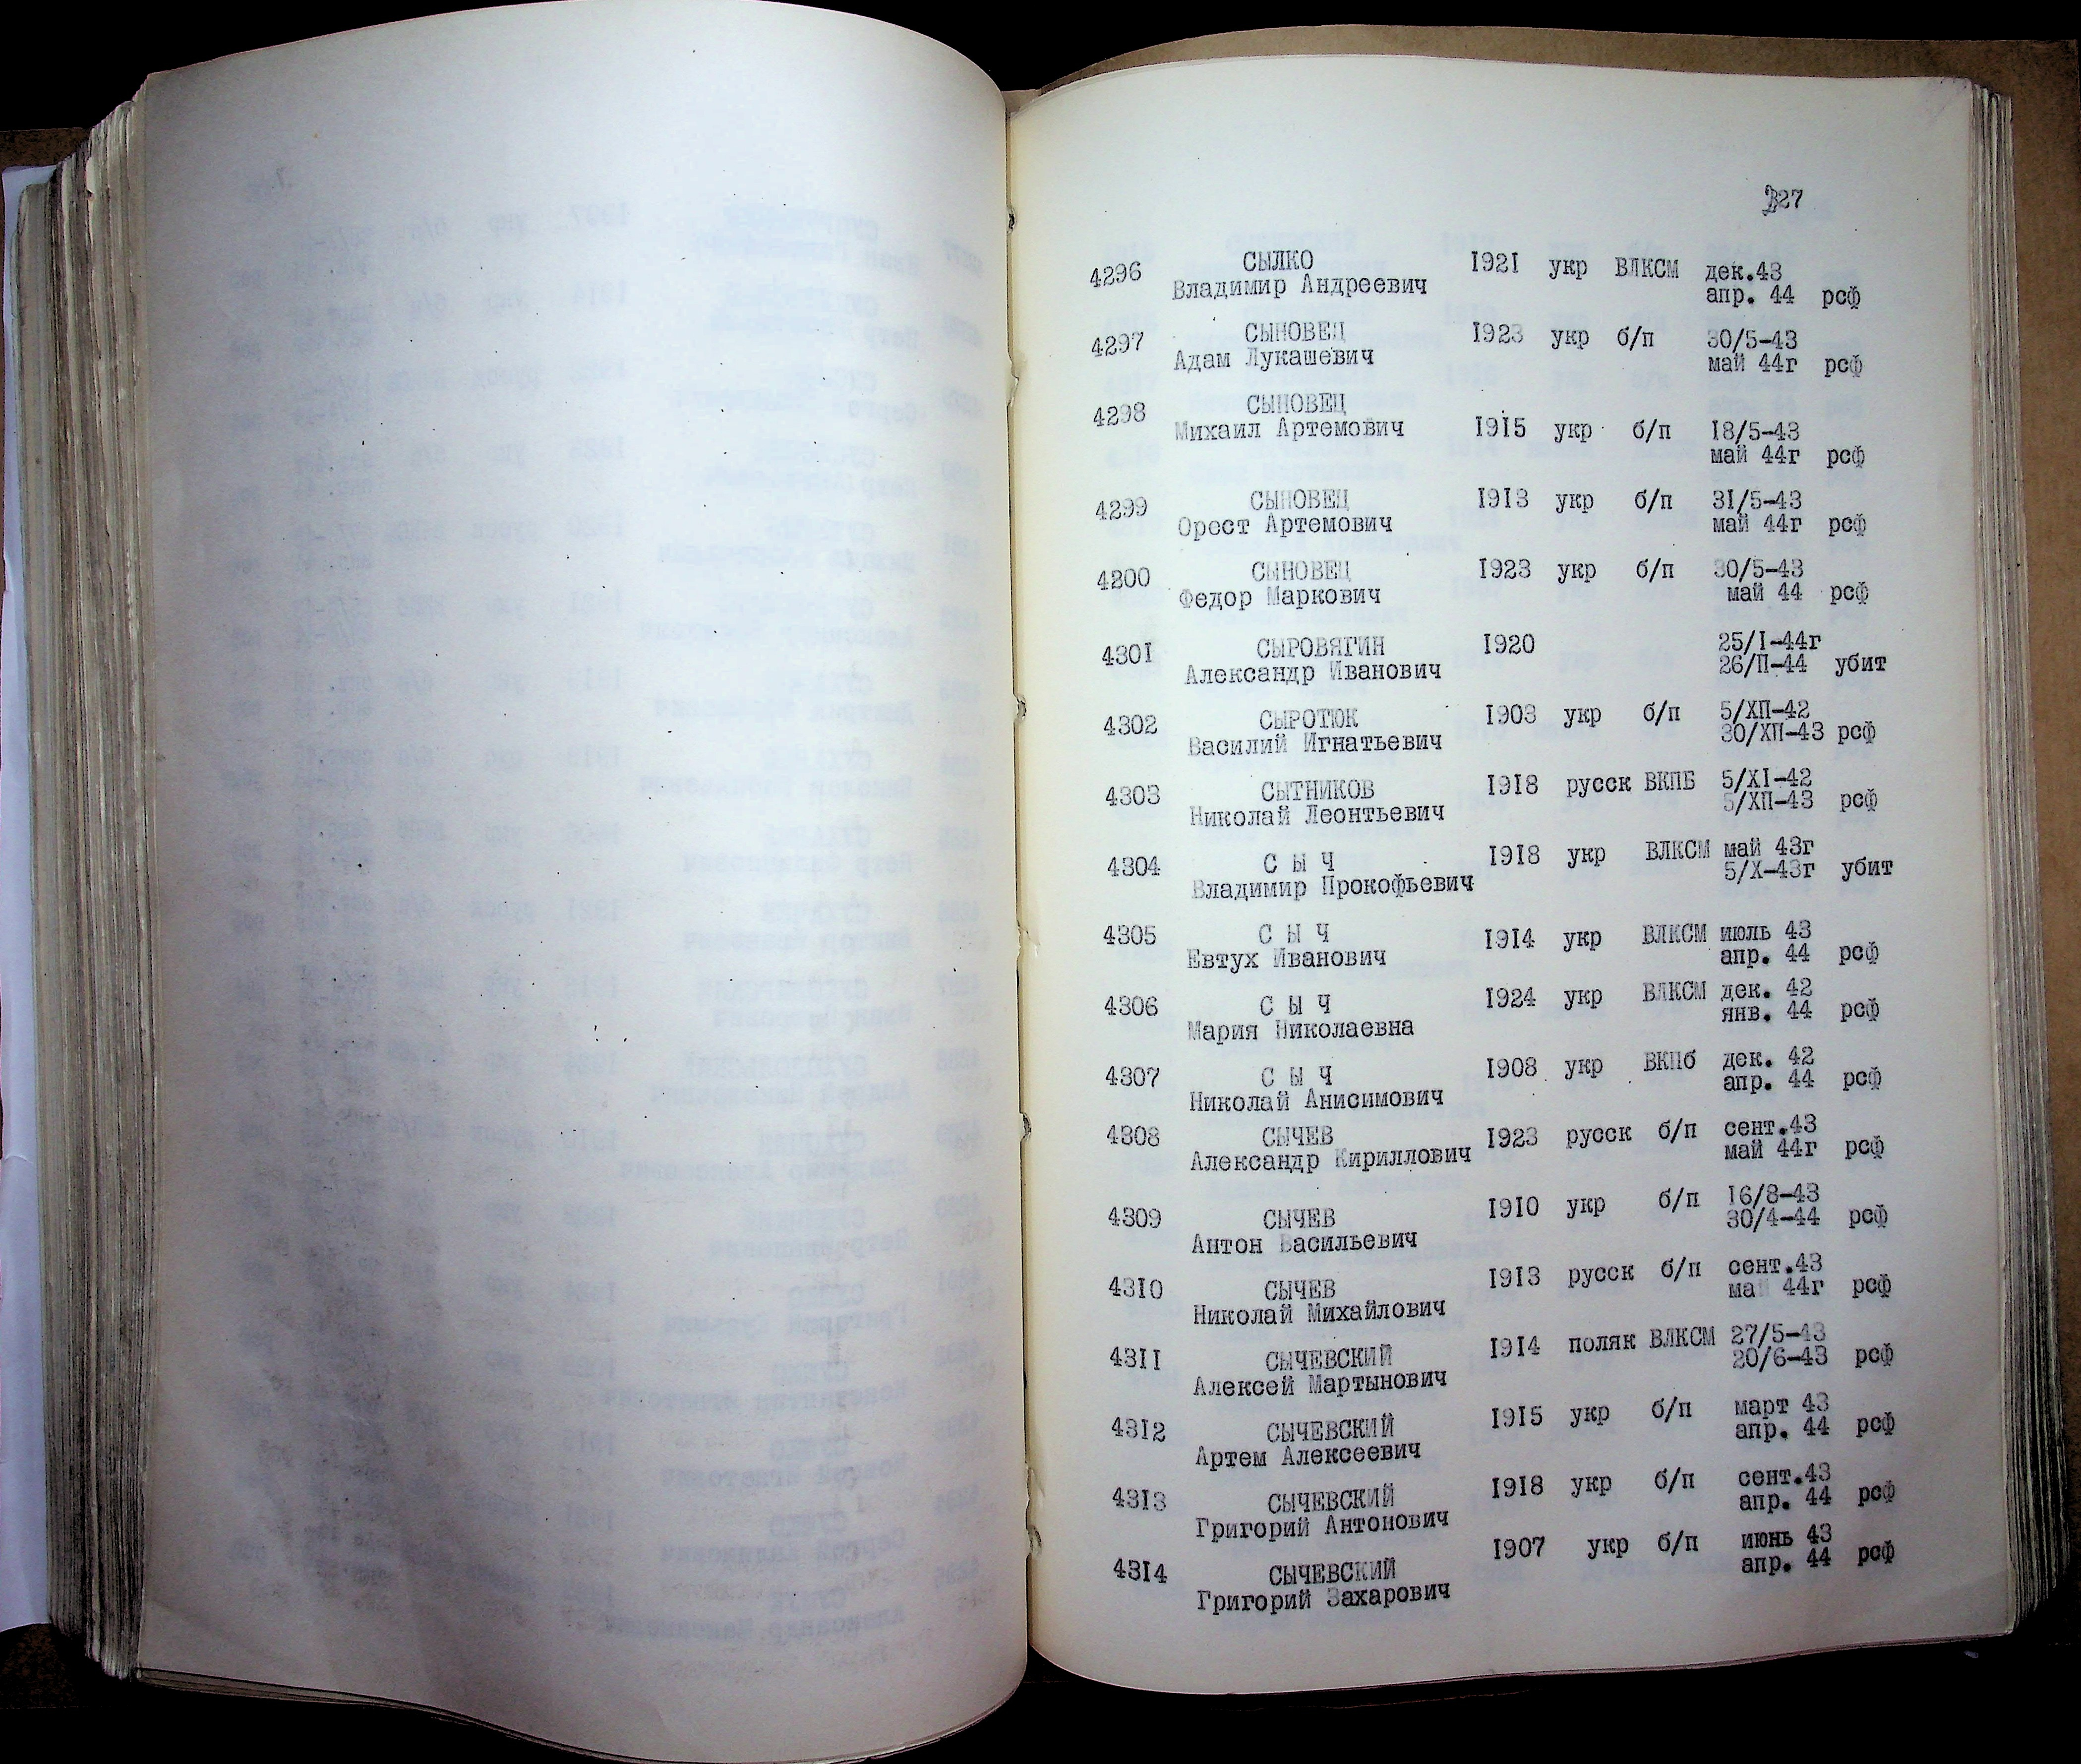 327
4296 СЫЛКО 1921 укр ВЛКСМ дек.43
Владимир Андреевич апр. 44 рсф
4297 СЫНОВЕЦ 1923 укр б/п 30/5-43
Адам Лукашевич май 44г рсф
4298 СЫНОВЕЦ
Михаил Артемович 1915 укр б/п 18/5-43
май 44г рсф
4299 СЫНОВЕЦ 1913 укр б/п 31/5-43
Орест Артемович май 44г рсф
4200 СЫНОВЕЦ 1923 укр б/п 30/5-43
Федор Маркович май 44 рсф
4301 СЫРОВЯГИН 1920 25/I-44г
Александр Иванович 26/П-44 убит
4302 СЫРОТЮК 1903 укр б/п 5/ХП-42
Василий Игнатьевич 30/ХП-43 рсф
4303 СЫТНИКОВ 1918 русск ВКПБ 5/XI-42
Николай Леонтьевич 5/ХП-43 рсф
4304 С Ы Ч 1918 укр ВЛКСМ май 43г
Владимир Прокофьевич 5/Х-43г убит
4305 С Ы Ч 1914 укр ВЛКСМ июль 43
Евтух Иванович апр. 44 рсф
4306 С Ы Ч 1924 укр ВЛКСМ дек. 42
Мария Николаевна янв. 44 рсф
4307 С Ы Ч 1908 укр ВКПб дек. 42
Николай Анисимович апр. 44 рсф
4308 СЫЧЕВ 1923 русск б/п сент.43
Александр Кириллович май 44г рсф
4309 СЫЧЕВ 1910 укр б/п 16/8-43
Антон Васильевич 30/4-44 рсф
4310 СЫЧЕВ 1913 русск б/п сент.43
Николай Михайлович май 44г рсф
4311 СЫЧЕВСКИЙ 1914 поляк ВЛКСМ 27/5-43
Алексей Мартынович 20/6-43 рсф
4312 СЫЧЕВСКИЙ 1915 укр б/п март 43
Артем Алексеевич апр. 44 рсф
4313 СЫЧЕВСКИЙ 1918 укр б/п сент.43
Григорий Антонович апр. 44 рсф
4314 СЫЧЕВСКИЙ 1907 укр б/п июнь 43
Григорий Захарович апр. 44 рсф